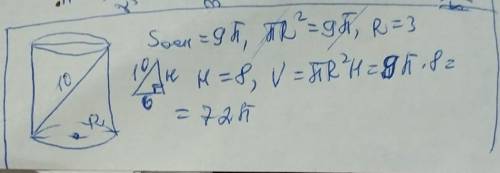 Sосн = 9π, πR² = 9π, R = 3
10
10 H
6
H = 8, V = πR²H = 9π · 8 =
= 72π
R